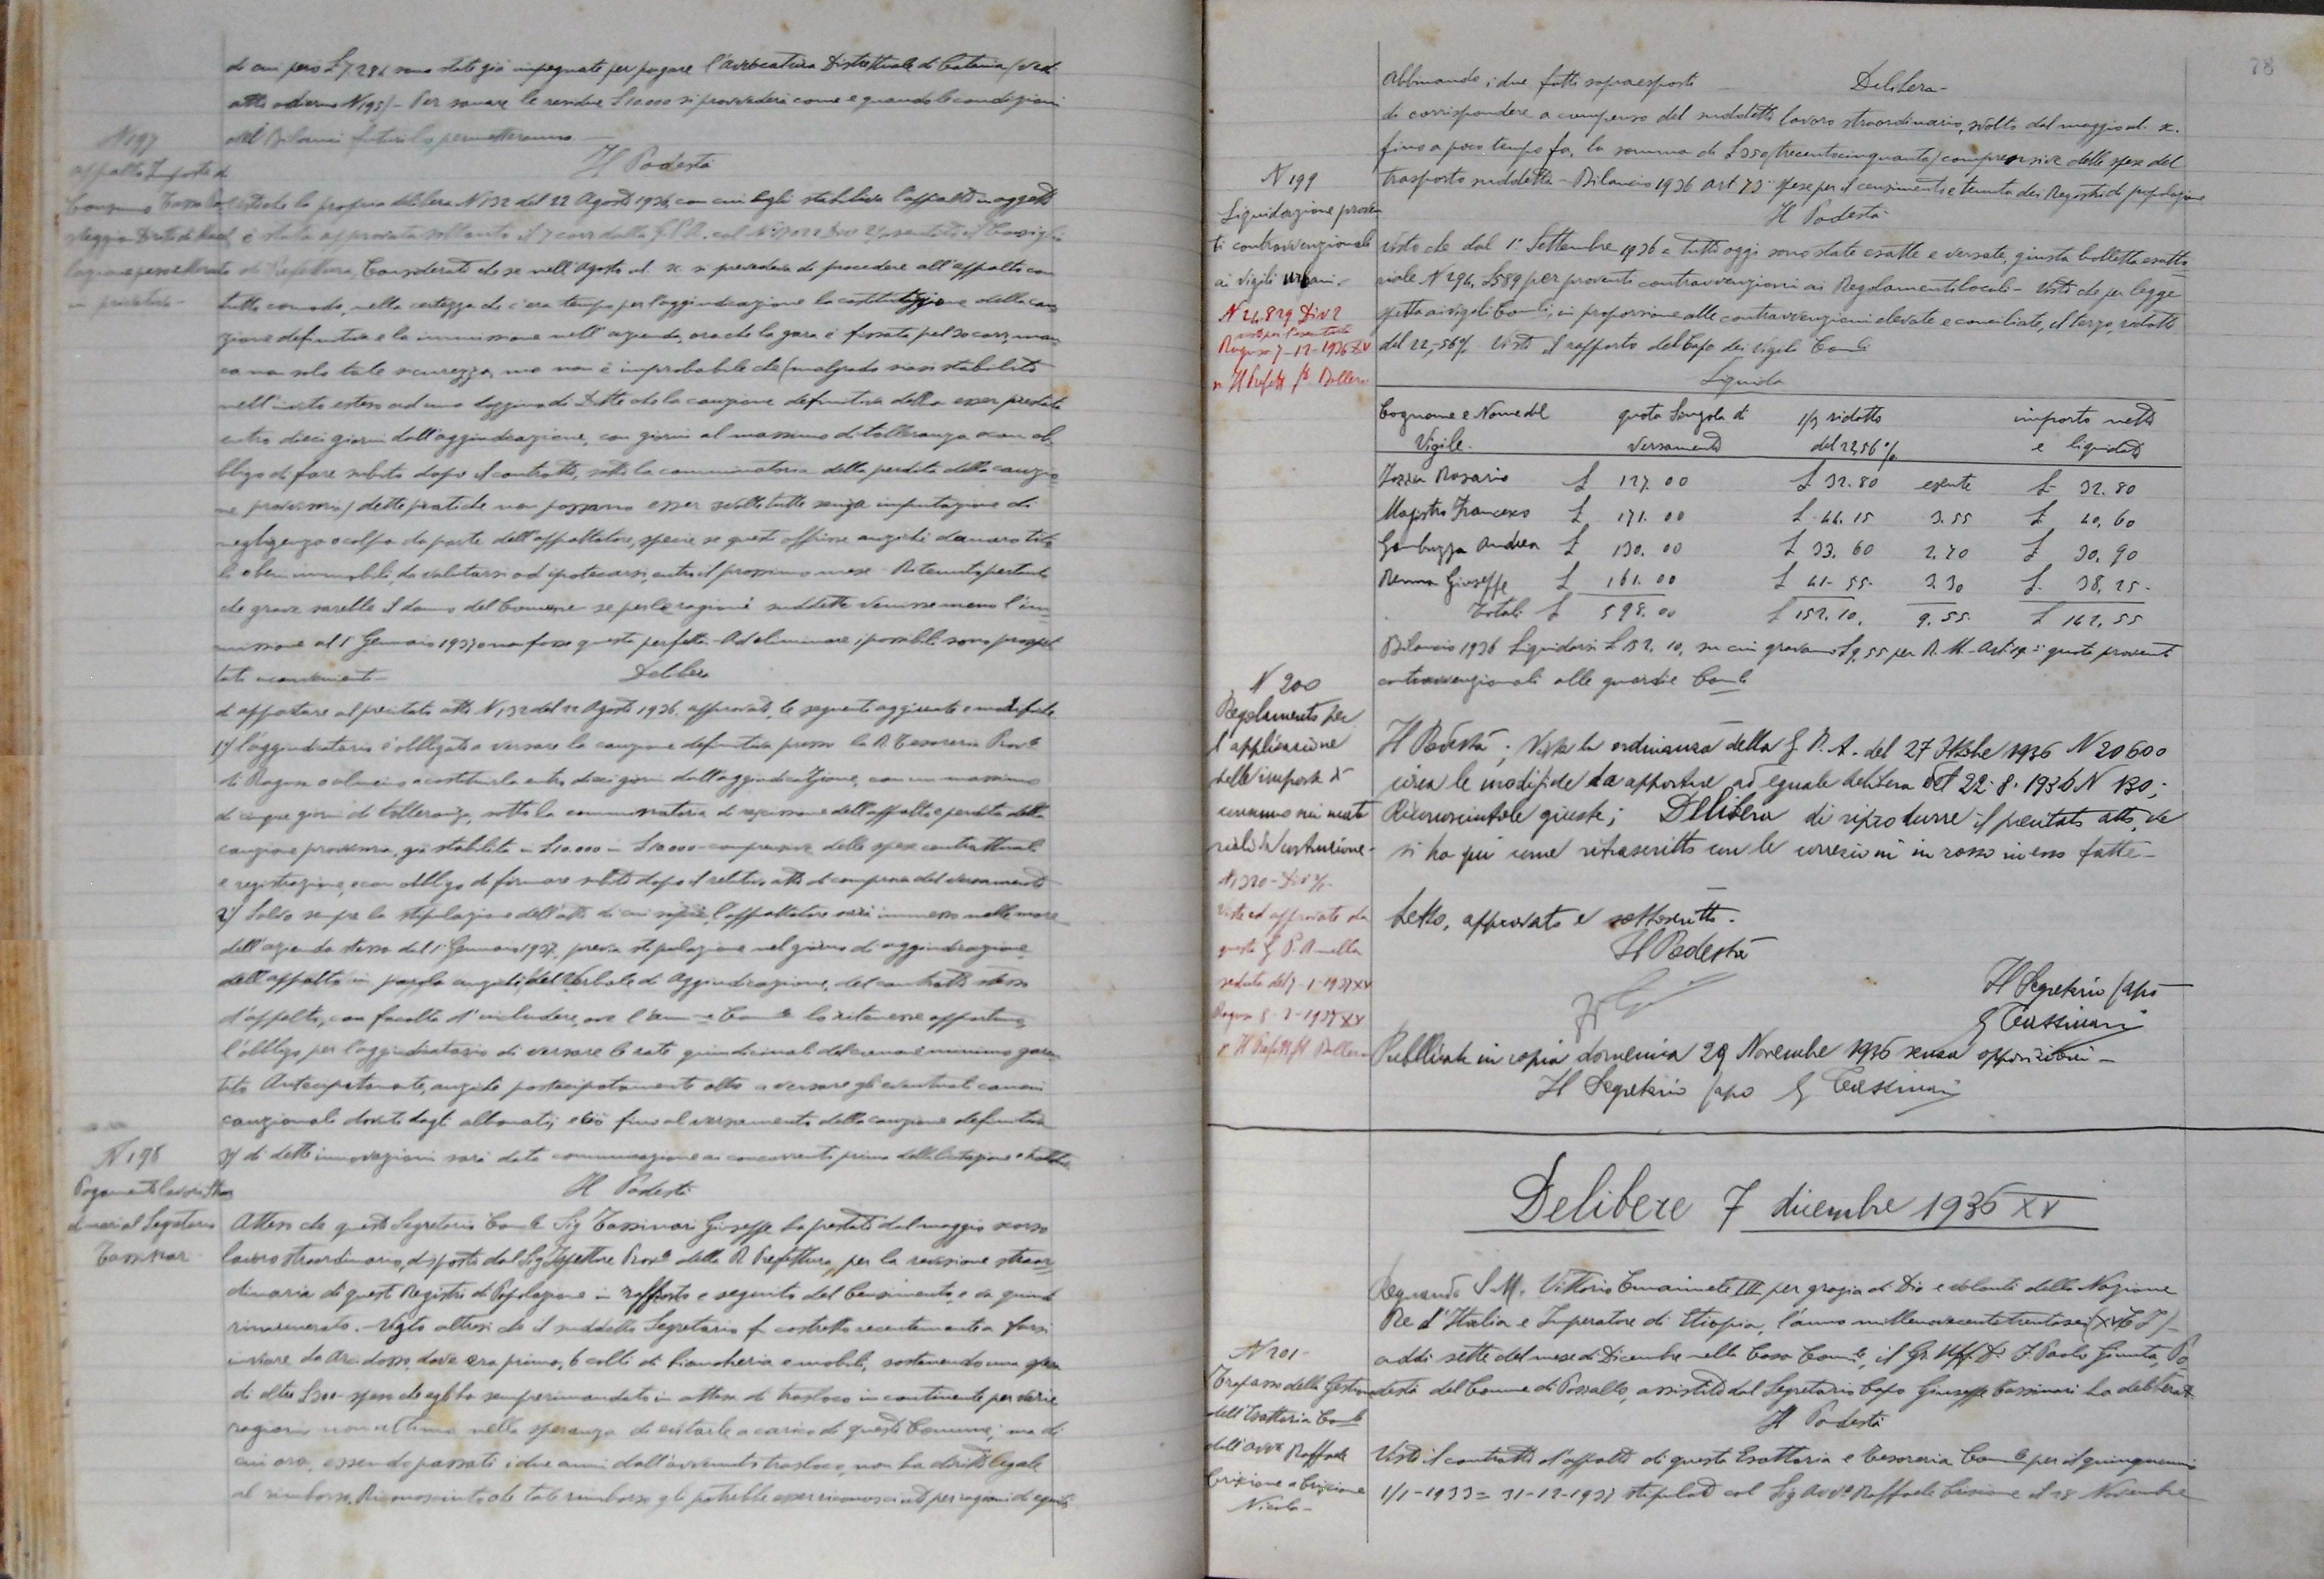 di cui però £ 7.286 sono state già impegnate per pagare l'Avvocatura Distrettuale di Catania (ved.
atto odierno N 195) - Per sanare le residue £ 10.000 si provvederà come e quando le condizioni
dei Bilanci futuri lo permetteranno -
N 197
Appalto Imposte di
Consumo
Il Podestà
la propria delibera N 132 del 22 Agosto 1936, con cui egli stabiliva l'appalto in oggetto
è stata approvata soltanto il 7 corr. dalla G.P.A. col
di Prefettura, Considerato che se nell'Agosto u. s. si prevedeva di procedere all'appalto con
tutto comodo, nella certezza che c'era tempo per l'aggiudicazione la costituzione della cau
zione definitiva e la immissione nell'azienda, ora che la gara è fissata pel 30 corr, man
ca non solo tale sicurezza, ma non è improbabile che (malgrado siasi stabilito
nell'invito esteso ad una doggina di Ditte che la cauzione definitiva debba esser prestata
entro dieci giorni dall'aggiudicazione, con giorni al massimo di tolleranza e con ob
bligo di fare subito dopo il contratto, sotto la comminatoria della perdita della cauzio
ne provvisoria) dette pratiche non possano esser svolte tutte senza imputazione di
negligenza o colpa da parte dell'appaltatore, specie se questi offrisse anzichè danaro tito
li o beni immobili, da valutarsi ad ipotecarsi, entro il prossimo mese - Ritenuto pertanto
che grave sarebbe il danno del Comune se per le ragioni suddette venisse meno l'im
missione al 1° Gennaio 1937 o non fosse questa perfetta - Ad eliminare i possibili sono prospet
tati inconvenienti -
Delibera
di apportare al precitato atto N 132 del 22 Agosto 1936, approvato, le seguenti aggiunte e modifiche
1°) l'aggiudicatario è obbligato a versare la cauzione definitiva presso la R. Tesoreria Prov.le
di Ragusa o almeno a costituirla entro dieci giorni dall'aggiudicazione, con un massimo
di cinque giorni di tolleranza, sotto la comminatoria di rescissione dell'appalto e perdita della
cauzione provvisoria, già stabilita in £ 10.000 in £ 10.000 comprensive delle spese contrattuali
e registrazione, e con obbligo di firmare subito dopo il relativo atto di comprova del versamento
2°) Salvo sempre la stipulazione dell'atto di cui sopra, l'appaltatore sarà immesso nelle more
dell'azienda stessa dal 1° Gennaio 1937, previa stipulazione nel giorno di aggiudicazione
dell'appalto in parola anzichè, del Verbale di Aggiudicazione, del contratto stesso
d'appalto, con facoltà d'includere, ove l'Amm.e Com.le lo ritenesse opportuno,
l'obbligo per l'aggiudicatario di versare le rate quindicinali del canone minimo garan
tito Anticipatamente, anzichè posticipatamente oltre a versare gli eventuali canoni
cauzionali dovuti dagli abbonati, e ciò fino al versamento della cauzione definitiva
3°) di dette innovazioni sarà data comunicazione ai concorrenti prima della licitazione
N 198
Pagamento lavori Stra
dinari al Segretario
Tassinari
Il Podestà
Atteso che questo Segretario Com.le Sig Tassinari Giuseppe ha prestato dal maggio scorso
lavoro straordinario, disposto dal Sig Ispettore Prov.le della R Prefettura, per la revisione straor
dinaria di questi Registri di Popolazione in rapporto e seguito del Censimento, e va quindi
rimunerato. - Visto altresì che il suddetto Segretario fu costretto recentemente a farsi
inviare da Arcidosso dove era prima, 6 colli di biancheria e mobili, sostenendo una spesa
di oltre £ 300 - spesa che egli ha sempre rimandato in attesa di trasloco in continente, per varie
ragioni non ultima nella speranza di evitarla a carico di questo Comune; ma di
cui ora, essendo passati i due anni dall'avvenuto trasloco, non ha diritto legale
al rimborso. Riconosciuto che tale rimborso gli potrebbe esser riconosciuto per ragioni di equità
78
Abbinando i due fatti sopraesposti - Delibera -
di corrispondere a compenso del suddetto lavoro straordinario, svolto dal maggio u. s.
fino a poco tempo fa, la somma di £ 350 (trecentocinquanta) comprensiva delle spese del
trasporto suddetto - Bilancio 1936 Art 73 = spese per il censimento e tenuta dei Registri di popolazione
N 199
Liquidazione proven
ti contravvenzionali
ai vigili urbani -
N 24829 Div 2
Visto per l'esecutorietà
Ragusa 7-12-1936 XV
p. Il Prefetto
Il Podestà
Visto che dal 1° Settembre 1936 a tutt'oggi sono state esatte e versate, giusta bolletta esatto
riale N 294, £ 589 per proventi contravvenzioni ai Regolamenti locali - Visto che per legge
spetta ai vigili Com.li, in proporzione alle contravvenzioni elevate e conciliate, il terzo, ridotto
del 22,56% Visto il rapporto del Capo dei Vigili Com.li
Liquida
Cognome e Nome del Vigile. quota Singola di Versamento 1/3 ridotto del 22,56% importo netto e liquidato
Rosario £ 127.00 £ 32.80 esente £ 32.80
Magistro Francesco £ 171.00 £ 44.15 3.55 £ 40.60
Gambuzza Andrea £ 130.00 £ 33.60 2.70 £ 30.90
Renna Giuseppe £ 161.00 £ 41.55 3.30 £ 38.25
Totali £ 598.00 £ 152.10. 9.55 £ 142.55
Bilancio 1936 Liquidarsi £ 152.10, su cui gravano £ 9,55 per R. M. Art. 19 = quota proventi
contravvenzionali alle guardie Com.li
N 200
Regolamento per
l'applicazione
delle imposte di
consumo sui mate
riali da costruzione -
N 1320 - Div 2/1 -
Visto ed approvato da
questa G P A nella
seduta del 7-1-1937 XV
Ragusa 8-2-1937 XV
p. Il Prefetto
Il Podestà; Vista la ordinanza della G. P. A. del 27 Ottobre 1936 N 20600
circa le modifiche da apportare ad eguale delibera del 22-8-1936 N 130;
Riconosciutele giuste; Delibera di riprodurre il precitato atto, che
si ha qui come ritrascritto con le correzioni in rosso in esso fatte -
Letto, approvato e sottoscritto -
Il Podestà
Il Segretario Capo
G Tassinari
Pubblicate in copia domenica 29 Novembre 1936 senza opposizioni -
Il Segretario Capo G Tassinari
Delibere 7 dicembre 1936 XV
Regnando S. M. Vittorio Emanuele III per grazia di Dio e volontà della Nazione
Re d'Italia e Imperatore di Etiopia, l'anno millenovecentotrentasei (XV E F) -
addì sette del mese di Dicembre nella Casa Com.le, il Gr. Uff. Dr. F. Paolo Giunta, Po
destà del Comune di Pozzallo, assistito dal Segretario Capo Giuseppe Tassinari ha deliberato
N 201 -
Trapasso della Gestione
dell'Esattoria Com.le
dall'Avv. Raffaele
Crisione a Crisione
Nicola -
Il Podestà
Visto il contratto d'appalto di questa Esattoria e Tesoreria Com.le per il quinquennio
1/1-1933 = 31-12-1937 stipulato col Sig Avv. Raffaele Crisione il 28 Novembre